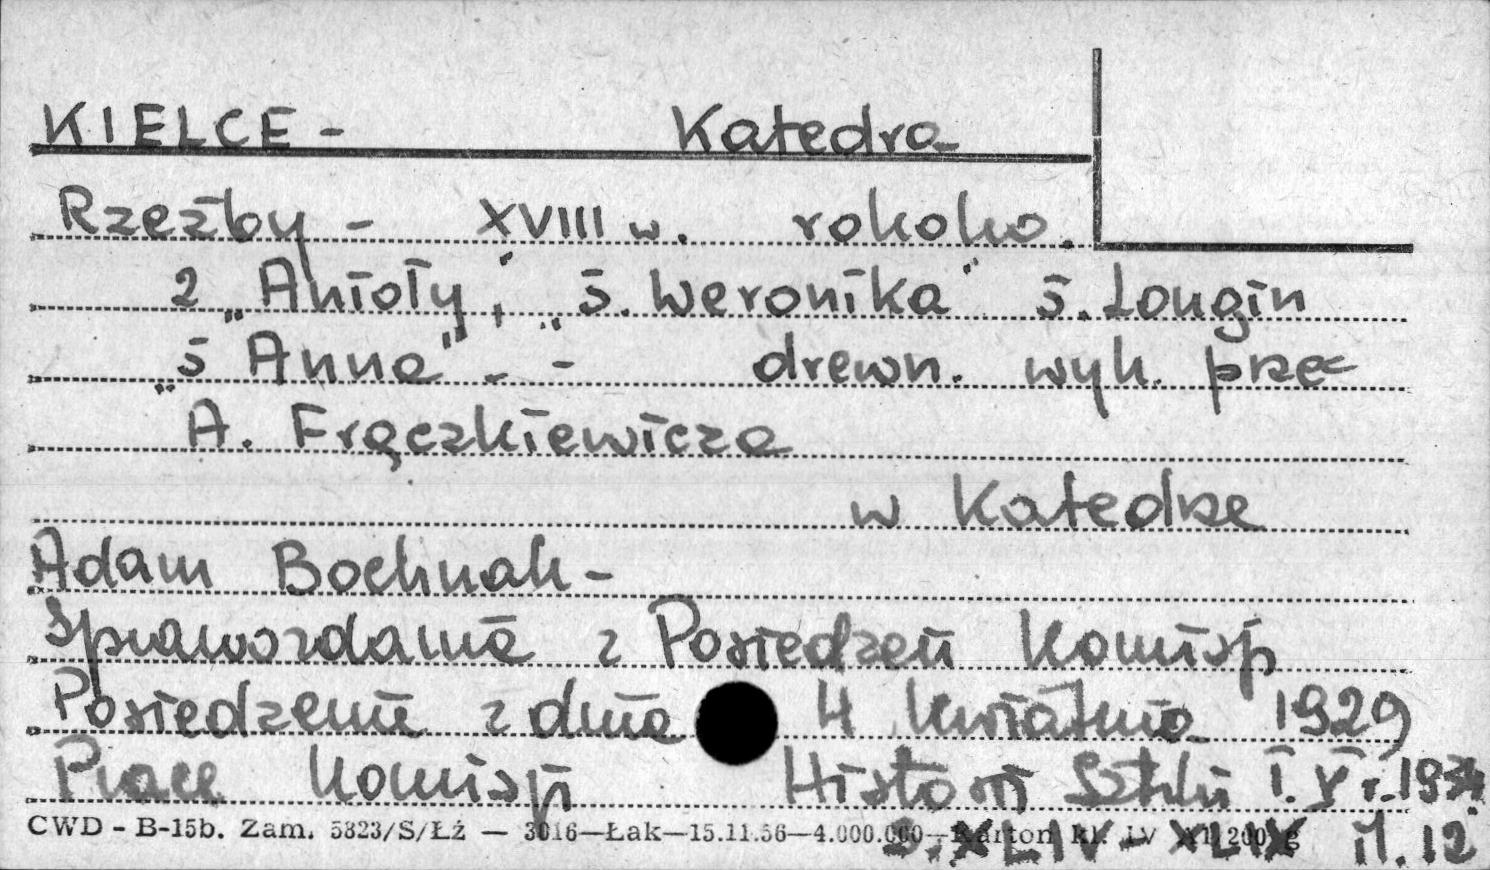 KIELCE - Katedra
Rzeźby - XVIII w. rokoko.
2 „Anioły", „Ś. Weronika" Ś. Longin
„Ś Anna" - - drewn. wyk. prze
A. Frączkiewicza
w Katedrze
Adam Bochnak -
Sprawozdania z Posiedzeń Komisji
Posiedzenie z dnia 4 kwietnia 1929
Prace Komisji Historii Sztuki T. V r. 1934
CWD - B-15b. Zam. 5823/S/Łź — 3016—Łak—15.11.56—4.000.000—Karton kl. IV A1 200 g
S. XLIV - XLIX il. 12